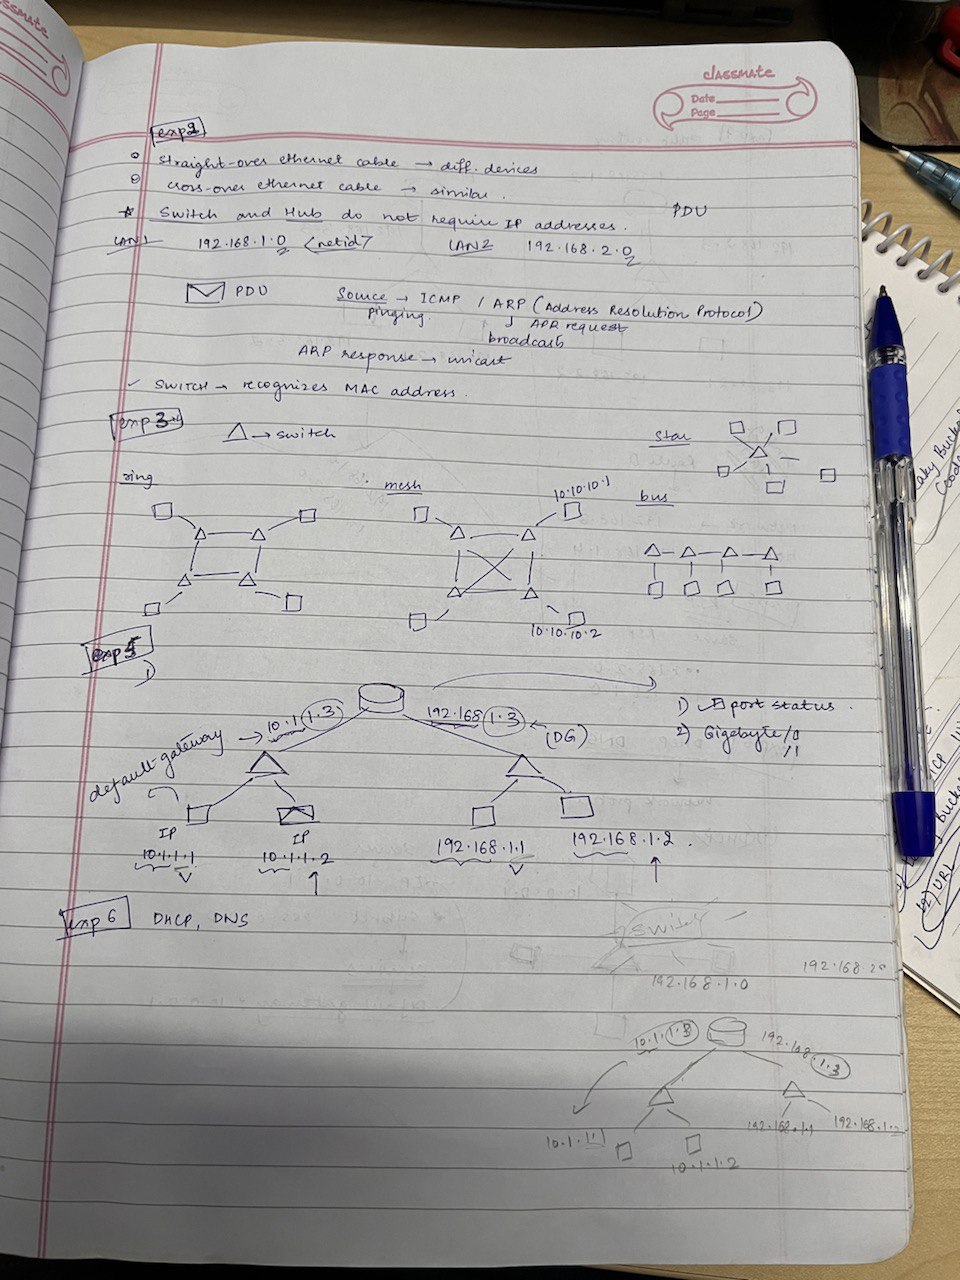 classmate
Date
Page
exp2
straight-over ethernet cable → diff. devices
cross-over ethernet cable → similar.
PDU
★ Switch and Hub do not require IP addresses.
LAN1 192.168.1.0 <netid> LAN2 192.168.2.0
PDU
Source → ICMP / ARP (Address Resolution Protocol)
pinging.
↓ APR request
broadcasts
ARP response → unicast
✓ SWITCH → recognizes MAC address.
exp 3
△ → switch
star
ring
mesh
10.10.10.1
bus
10.10.10.2
exp 5
1)
10.1.1.3
192.168.1.3 ← (DG)
1) port status.
2) Gigabyte /0
/1
default gateway →
IP
10.1.1.1
IP
10.1.1.2
192.168.1.1
192.168.1.2.
exp 6 DHCP, DNS
switch
192.168.1.0
192.168.20
10.1.1.3
192.168.1.3
10.1.1.1
10.1.1.2
192.168.1.1
192.168.1.2
Leaky Bucket
Code
Bucket
URL